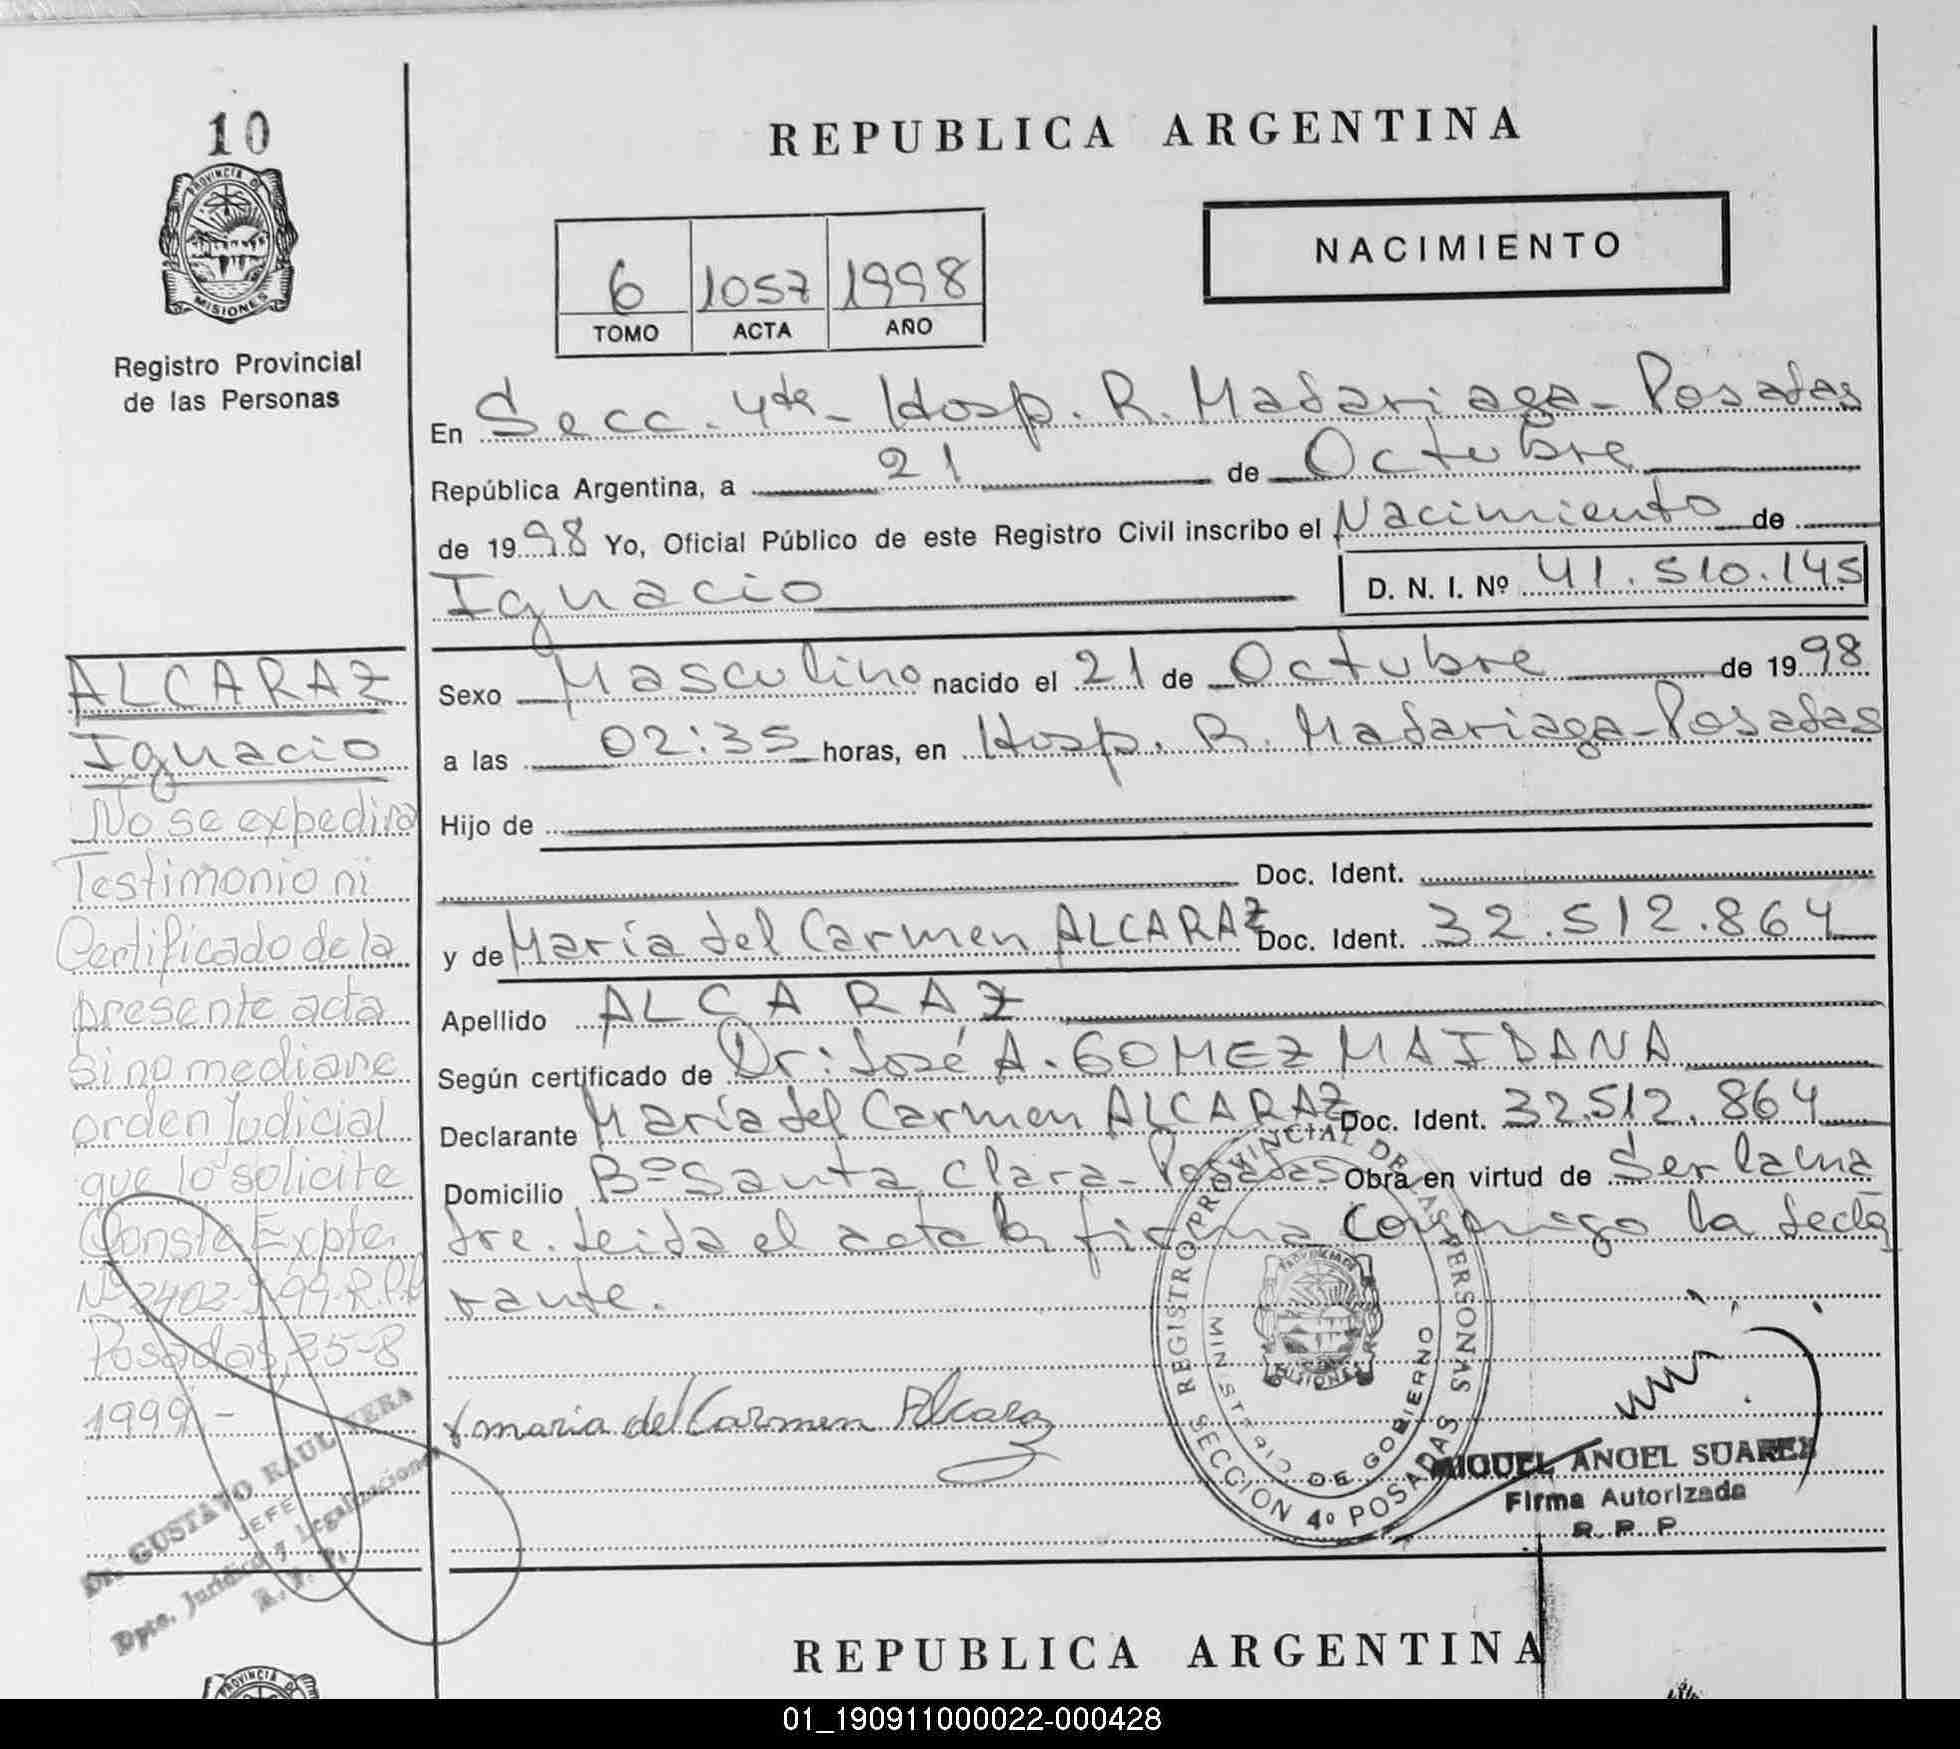 10
PROVINCIA DE
MISIONES
Registro Provincial
de las Personas
REPUBLICA ARGENTINA
NACIMIENTO
6 1057 1998
TOMO ACTA AÑO
En Secc. 4ta - Hosp. R. Madariaga - Posadas
República Argentina, a 21 de Octubre
de 1998 Yo, Oficial Público de este Registro Civil inscribo el Nacimiento de
Ignacio D. N. I. Nº 41.510.145
Sexo Masculino nacido el 21 de Octubre de 1998
a las 02:35 horas, en Hosp. R. Madariaga - Posadas
Hijo de
Doc. Ident.
y de María del Carmen ALCARAZ Doc. Ident. 32.512.864
Apellido ALCARAZ
Según certificado de Dr: José A. GOMEZ MAIDANA
Declarante María del Carmen ALCARAZ Doc. Ident. 32.512.864
Domicilio Bº Santa Clara - Posadas Obra en virtud de Ser la ma
dre. Leida el acta la firma conmigo la decla
rante.
maria del Carmen Alcaraz
ALCARAZ
Ignacio
No se expedira
Testimonio ni
Certificado de la
presente acta
Si no mediare
orden Judicial
que lo solicite
Conste Expte.
Posadas, 25-8
1999 -
Dr. GUSTAVO RAUL
JEFE
Dpto. Jurídico y Legalizaciones
REGISTRO PROVINCIAL DE LAS PERSONAS
MINISTERIO DE GOBIERNO
SECCION 4º POSADAS
MISIONES
MIGUEL ANGEL SUAREZ
Firma Autorizada
R. P. P
REPUBLICA ARGENTINA
PROVINCIA
01_190911000022-000428